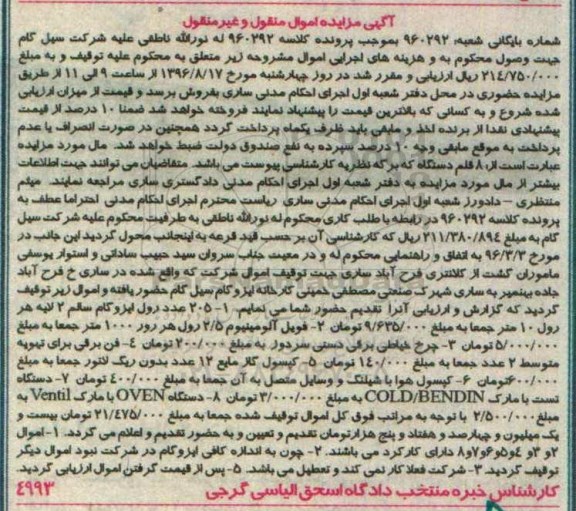 آگهی مزایده اموال منقول و غیر منقول
شماره بایگانی شعبه: ۹۶۰۲۹۲ بموجب پرونده کلاسه ۹۶۰۲۹۲ له نورالله ناطقی علیه شرکت سیل گام
جهت وصول محکوم به و هزینه های اجرایی اموال مشروحه زیر متعلق به محکوم علیه توقیف و به مبلغ
۲۱۴/۷۵۰/۰۰۰ ریال ارزیابی و مقرر شد در روز چهارشنبه مورخ ۱۳۹۶/۸/۱۷ از ساعت ۹ الی ۱۱ از طریق
مزایده حضوری در محل دفتر شعبه اول اجرای احکام مدنی ساری بفروش برسد و قیمت از میزان ارزیابی
شده شروع و به کسانی که بالاترین قیمت را پیشنهاد نمایند فروخته خواهد شد ضمنا ۱۰ درصد از قیمت
پیشنهادی نقدا از برنده اخذ و مابقی باید ظرف یکماه پرداخت گردد همچنین در صورت انصراف یا عدم
پرداخت به موقع مابقی وجه ۱۰ درصد سپرده به نفع صندوق دولت ضبط خواهد شد. مال مورد مزایده
عبارت است از: ۸ قلم دستگاه که برگه نظریه کارشناسی پیوست می باشد. متقاضیان می توانند جهت اطلاعات
بیشتر از مال مورد مزایده به دفتر شعبه اول اجرای احکام مدنی دادگستری ساری مراجعه نمایند. میثم
منتظری – دادورز شعبه اول اجرای احکام مدنی ساری ریاست محترم اجرای احکام مدنی احتراما عطف به
پرونده کلاسه ۹۶۰۲۹۲ در رابطه با طلب کاری محکوم له نورالله ناطقی به طرفیت محکوم علیه شرکت سیل
گام به مبلغ ۲۱۱/۳۸۰/۸۹۴ ریال که کارشناسی آن بر حسب قید قرعه به اینجانب محول گردید این جانب در
مورخ ۹۶/۳/۳ به اتفاق و راهنمایی محکوم له و در معیت جناب سروان سید حبیب ساداتی و استوار یوسفی
ماموران گشت از کلانتری فرح آباد ساری جهت توقیف اموال شرکت که واقع شده در ساری خ فرح آباد
جاده بهنمیر به ساری شهرک صنعتی مصطفی خمینی کارخانه ایزوگام سیل گام حضور یافته و اموال زیر توقیف
گردید که گزارش و ارزیابی آنرا تقدیم حضور شما می نمایم. ۱- ۲۰۵ عدد رول ایزوگام سالم ۲ لایه هر
رول ۱۰ متر جمعا به مبلغ ۹/۶۳۵/۰۰۰ تومان ۲- فویل آلومینیوم ۲/۵ رول هر رور ۱۰۰۰ متر جمعا به مبلغ
۵/۰۰۰/۰۰۰ تومان ۳- چرخ خیاطی برقی دستی سردوز به مبلغ ۲۰۰/۰۰۰ تومان ۴- فن برقی برای تهویه
متوسط ۲ عدد جمعا به مبلغ ۱۴۰/۰۰۰ تومان ۵- کپسول گاز مایع ۱۲ عدد بدون ریگ لاتور جمعا به مبلغ
۶۰۰/۰۰۰تومان ۶- کپسول هوا با شیلنگ و وسایل متصل به آن جمعا به مبلغ ۴۰۰/۰۰۰ تومان ۷- دستگاه
تست با مارک COLD/BENDIN به مبلغ ۳/۰۰۰/۰۰۰ تومان ۸- دستگاه OVEN با مارک Ventil به
مبلغ ۲/۵۰۰/۰۰۰ با توجه به مراتب فوق کل اموال توقیف شده جمعا به مبلغ ۲۱/۴۷۵/۰۰۰ تومان بیست و
یک میلیون و چهارصد و هفتاد و پنج هزارتومان تقدیم و تعیین و به حضور تقدیم و اعلام می گردد. ۱- اموال
۲و ۳ و ۴و۵و۶و۷و۸ دارای کارکرد می باشند. ۲- چون به اندازه کافی ایزوگام در شرکت نبود اموال دیگر
توقیف گردید. ۳- شرکت فعلا کار نمی کند و تعطیل می باشد. ۵- پس از قیمت گرفتن اموال ارزیابی گردید.
کارشناس خبره منتخب دادگاه اسحق الیاسی گرجی ۴۹۹۳